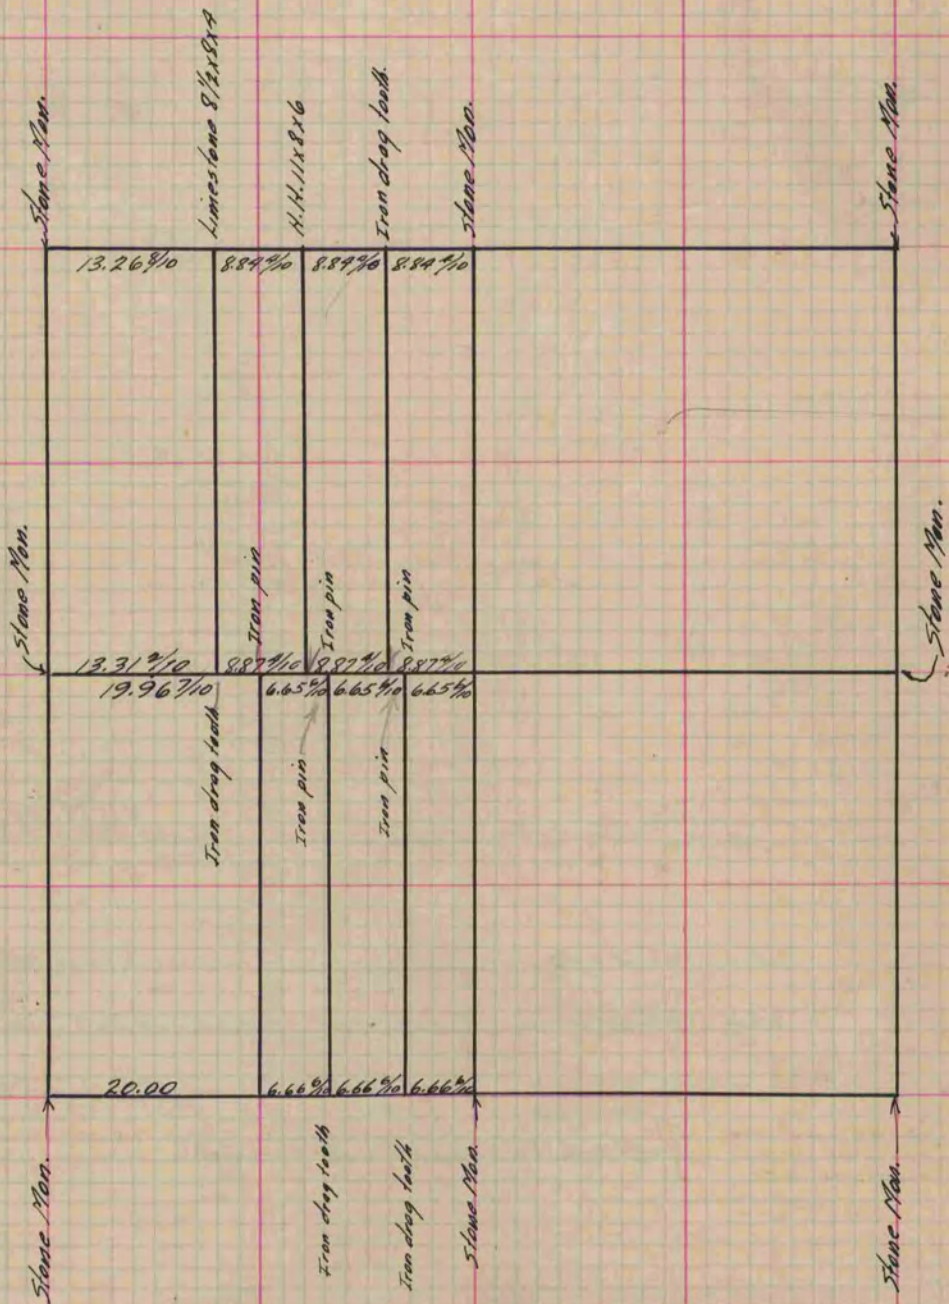 Stone Mon.
Limestone 8 1/2x8x4
H.H. 11x8x6
Iron drag tooth.
Stone Mon.
Stone Mon.
13.26 8/10
8.84 6/10
8.84 6/10
8.84 6/10
Stone Mon.
Iron pin
Iron pin
Iron pin
13.31 2/10
8.87 4/10
8.87 4/10
8.87 4/10
19.96 7/10
6.65 6/10
6.65 6/10
6.65 6/10
Stone Mon.
Iron drag tooth
Iron pin
Iron pin
20.00
6.66 6/10
6.66 6/10
6.66 6/10
Stone Mon.
Iron drag tooth
Iron drag tooth
Stone Mon.
Stone Mon.